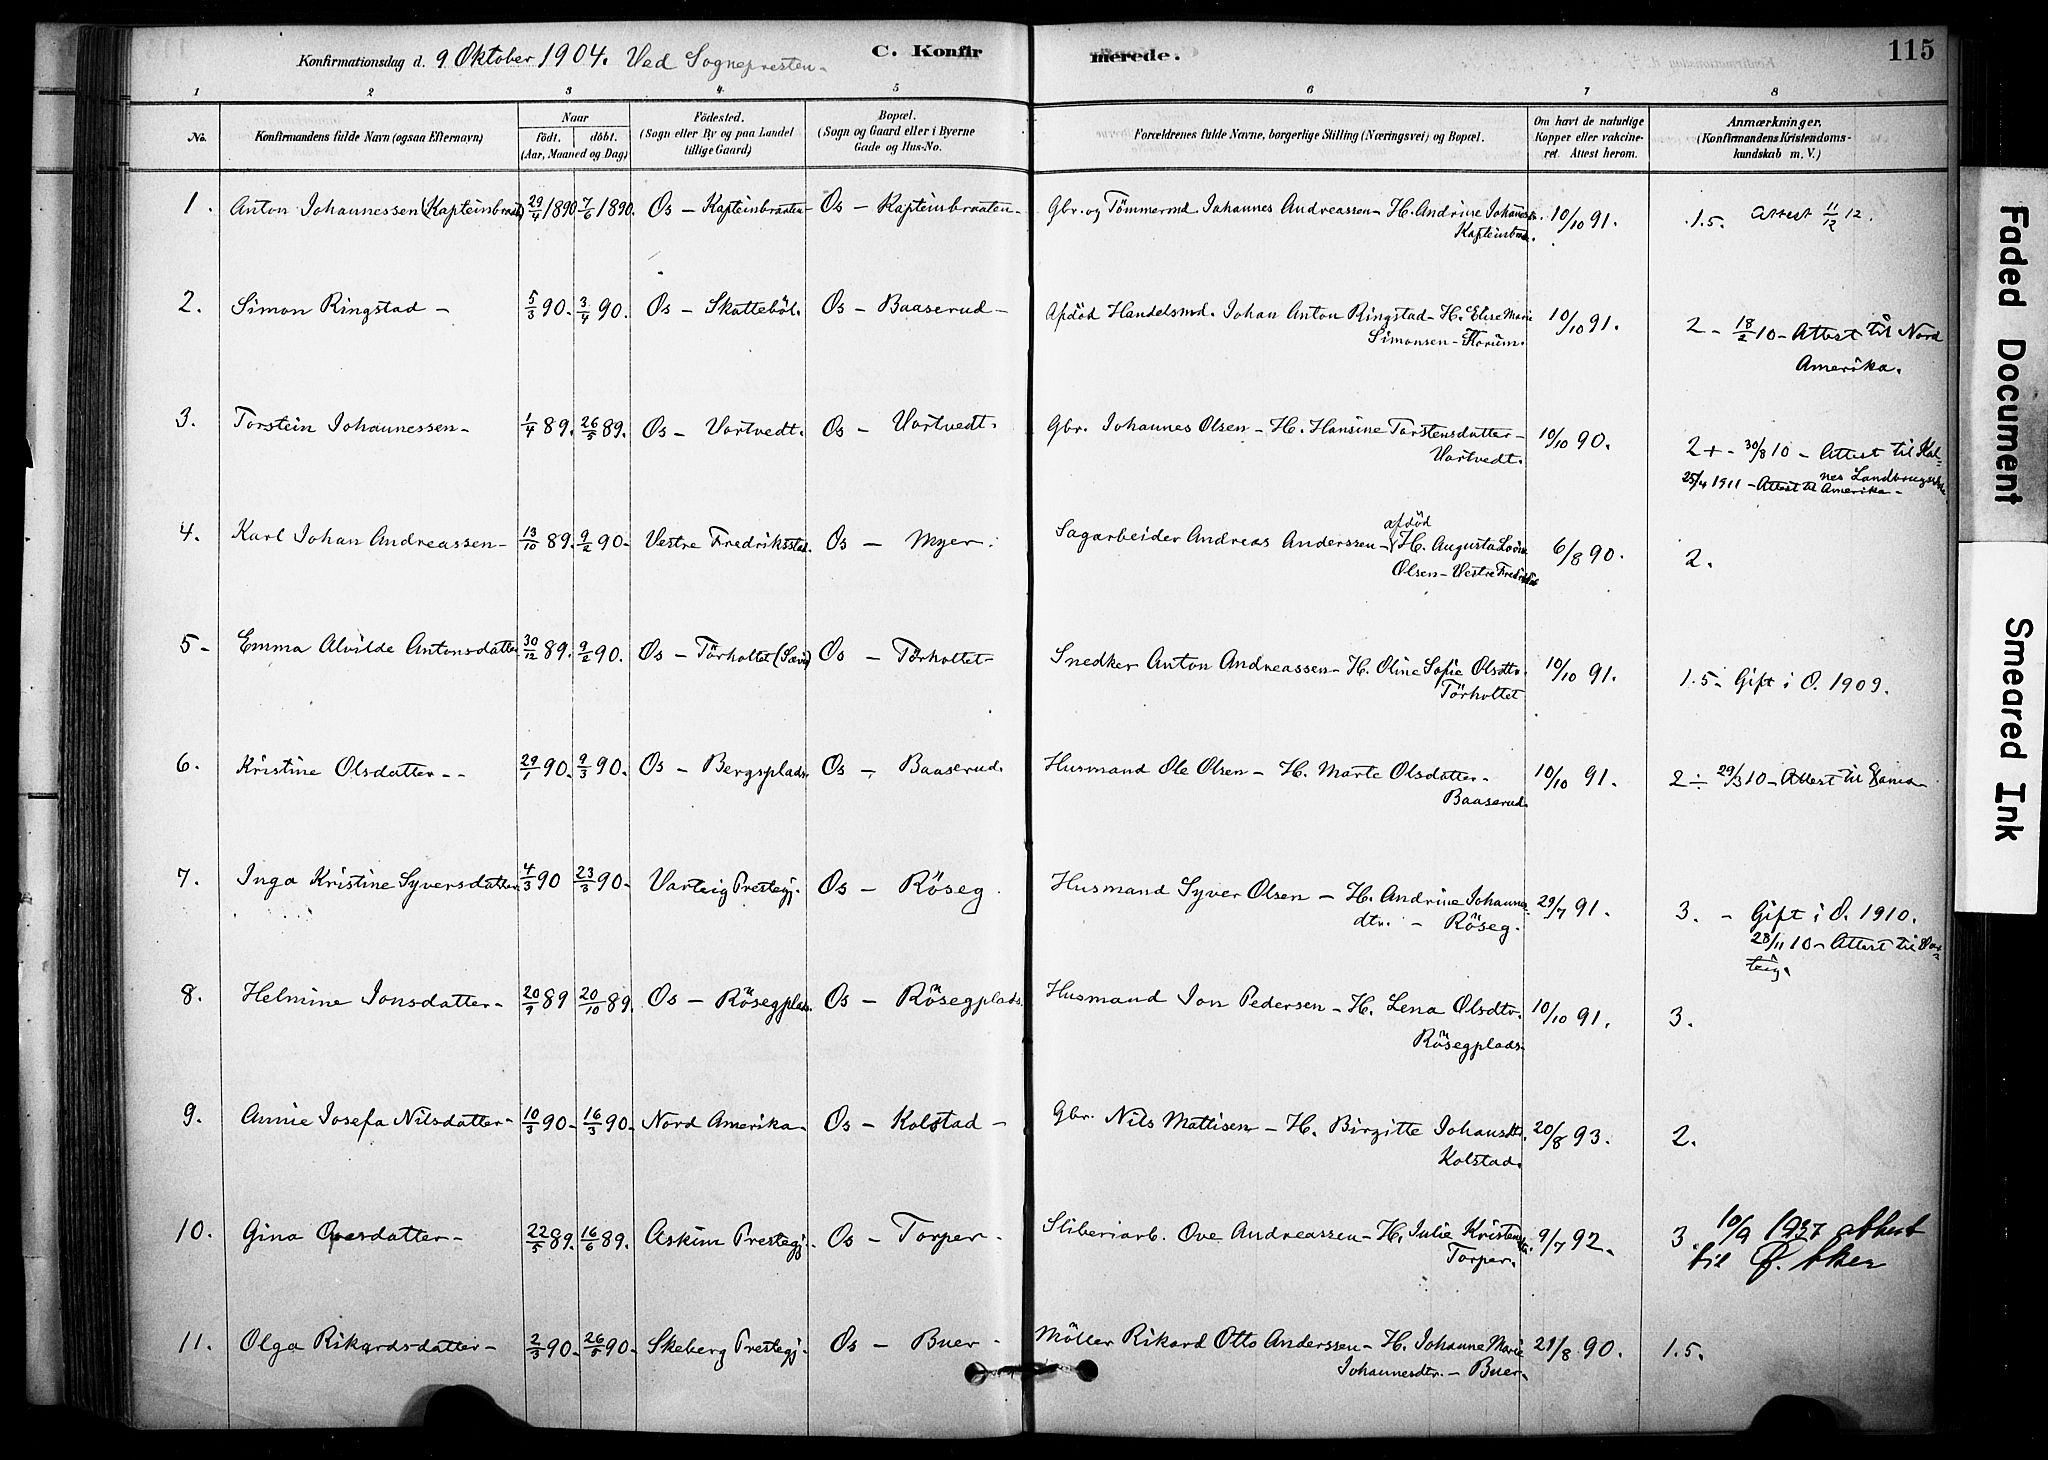 Konfirmationsdag d. 9 Oktober 1904. Ved Sognepresten.
C. Konfirmerede.
115
1 2 3 4 5 6 7 8
No.
Konfirmandens fulde Navn (ogsaa Efternavn)
Naar
födt. döbt.
(Aar, Maaned og Dag)
Födested.
(Sogn eller By og paa Landet
tillige Gaard)
Bopæl.
(Sogn og Gaard eller i Byerne
Gade og Hus-No.
Forældrenes fulde Navne, borgerlige Stilling (Næringsvei) og Bopæl.
Om havt de naturlige
Kopper eller vakcine-
ret. Attest herom.
Anmærkninger.
(Konfirmandens Kristendoms-
kundskab m. V.)
1. Anton Johannessen (Kapteinbraat) 29/4 1890 7/6 1890. Os - Kapteinbraaten Os - Kapteinbraaten - Gbr. og Tömmermd. Johannes Andreassen - H. Andrine Johannesd. 10/10 91. 1.5. Attest 11/12 12.
Kapteinbraa.
2. Simon Ringstad - 5/3 90. 3/4 90. Os - Skatteböl. Os - Baaserud - Afdöd Handelsmd. Johan Anton Ringstad - H. Elise Marie 10/10 91. 2 - 18/2 10 - Attest til Nord
Simonsen - Amerika.
3. Torstein Johannessen - 1/4 89. 26/5 89. Os - Vortvedt. Os - Vortvedt. Gbr. Johannes Olsen - H. Hansine Torstensdatter - 10/10 90. 2 + - 30/8 10 - Attest til Kal-
Vortvedt. nes Landbrugsskole
25/4 1911 - Attest til Amerika -
4. Karl Johan Andreassen - 13/10 89. 9/2 90 - Vestre Fredriksstad. Os - Myer. Sagarbeider Andreas Anderssen - afdöd H. Augusta Lovise 6/8 90. 2.
Olsen - Vestre Fredrikstad
5 - Emma Alvilde Antonsdatter 30/12 89. 9/2 90. Os - Törholtet Os - Törholtet - Snedker Anton Andreassen - H. Oline Sofie Olsdtr. 10/10 91. 1.5 - Gift i O. 1909.
Törholtet
6. Kristine Olsdatter - - 29/1 90. 9/3 90. Os - Bergsplads. Os - Baaserud. Husmand Ole Olsen - H. Marte Olsdatter - 10/10 91. 2 ÷ 29/3 10 - Attest til
Baaserud.
7. Inga Kristine Syversdatter 4/3 90 23/3 90 - Varteig Prestegj. Os - Röseg. Husmand Syver Olsen - H. Andrine Johannes- 29/7 91. 3. - Gift i O. 1910.
dtr. - Röseg. 28/11 10 - Attest til Var-
teig.
8. Helmine Jonsdatter - 20/9 89 20/10 89. Os - Rösegplads. Os - Rösegplads. Husmand Jon Pedersen - H. Lena Olsdtr. 10/10 91. 3.
Rösegplads.
9. Annie Josefa Nilsdatter - 10/3 90 - 16/3 90 - Nord Amerika - Os - Kolstad - Gbr. Nils Mattisen - H. Birgitte Johansdtr. 20/8 93. 2.
Kolstad.
10. Gina Ovesdatter - 22/5 89. 16/6 89. Askim Prestegj. Os - Torper - Sliberiarb. Ove Andreassen - H. Julie Kristensdtr. 9/7 92. 3. 10/9 1937 attest
Torper. til Ø. Aker
11. Olga Rikardsdatter - 2/3 90 - 26/5 90 - Skeberg Prestegj. Os - Buer - Möller Rikard Otto Anderssen - H. Johanne Marie 21/8 90. 1.5.
Johannesdtr. - Buer.
Faded Document
Smeared Ink